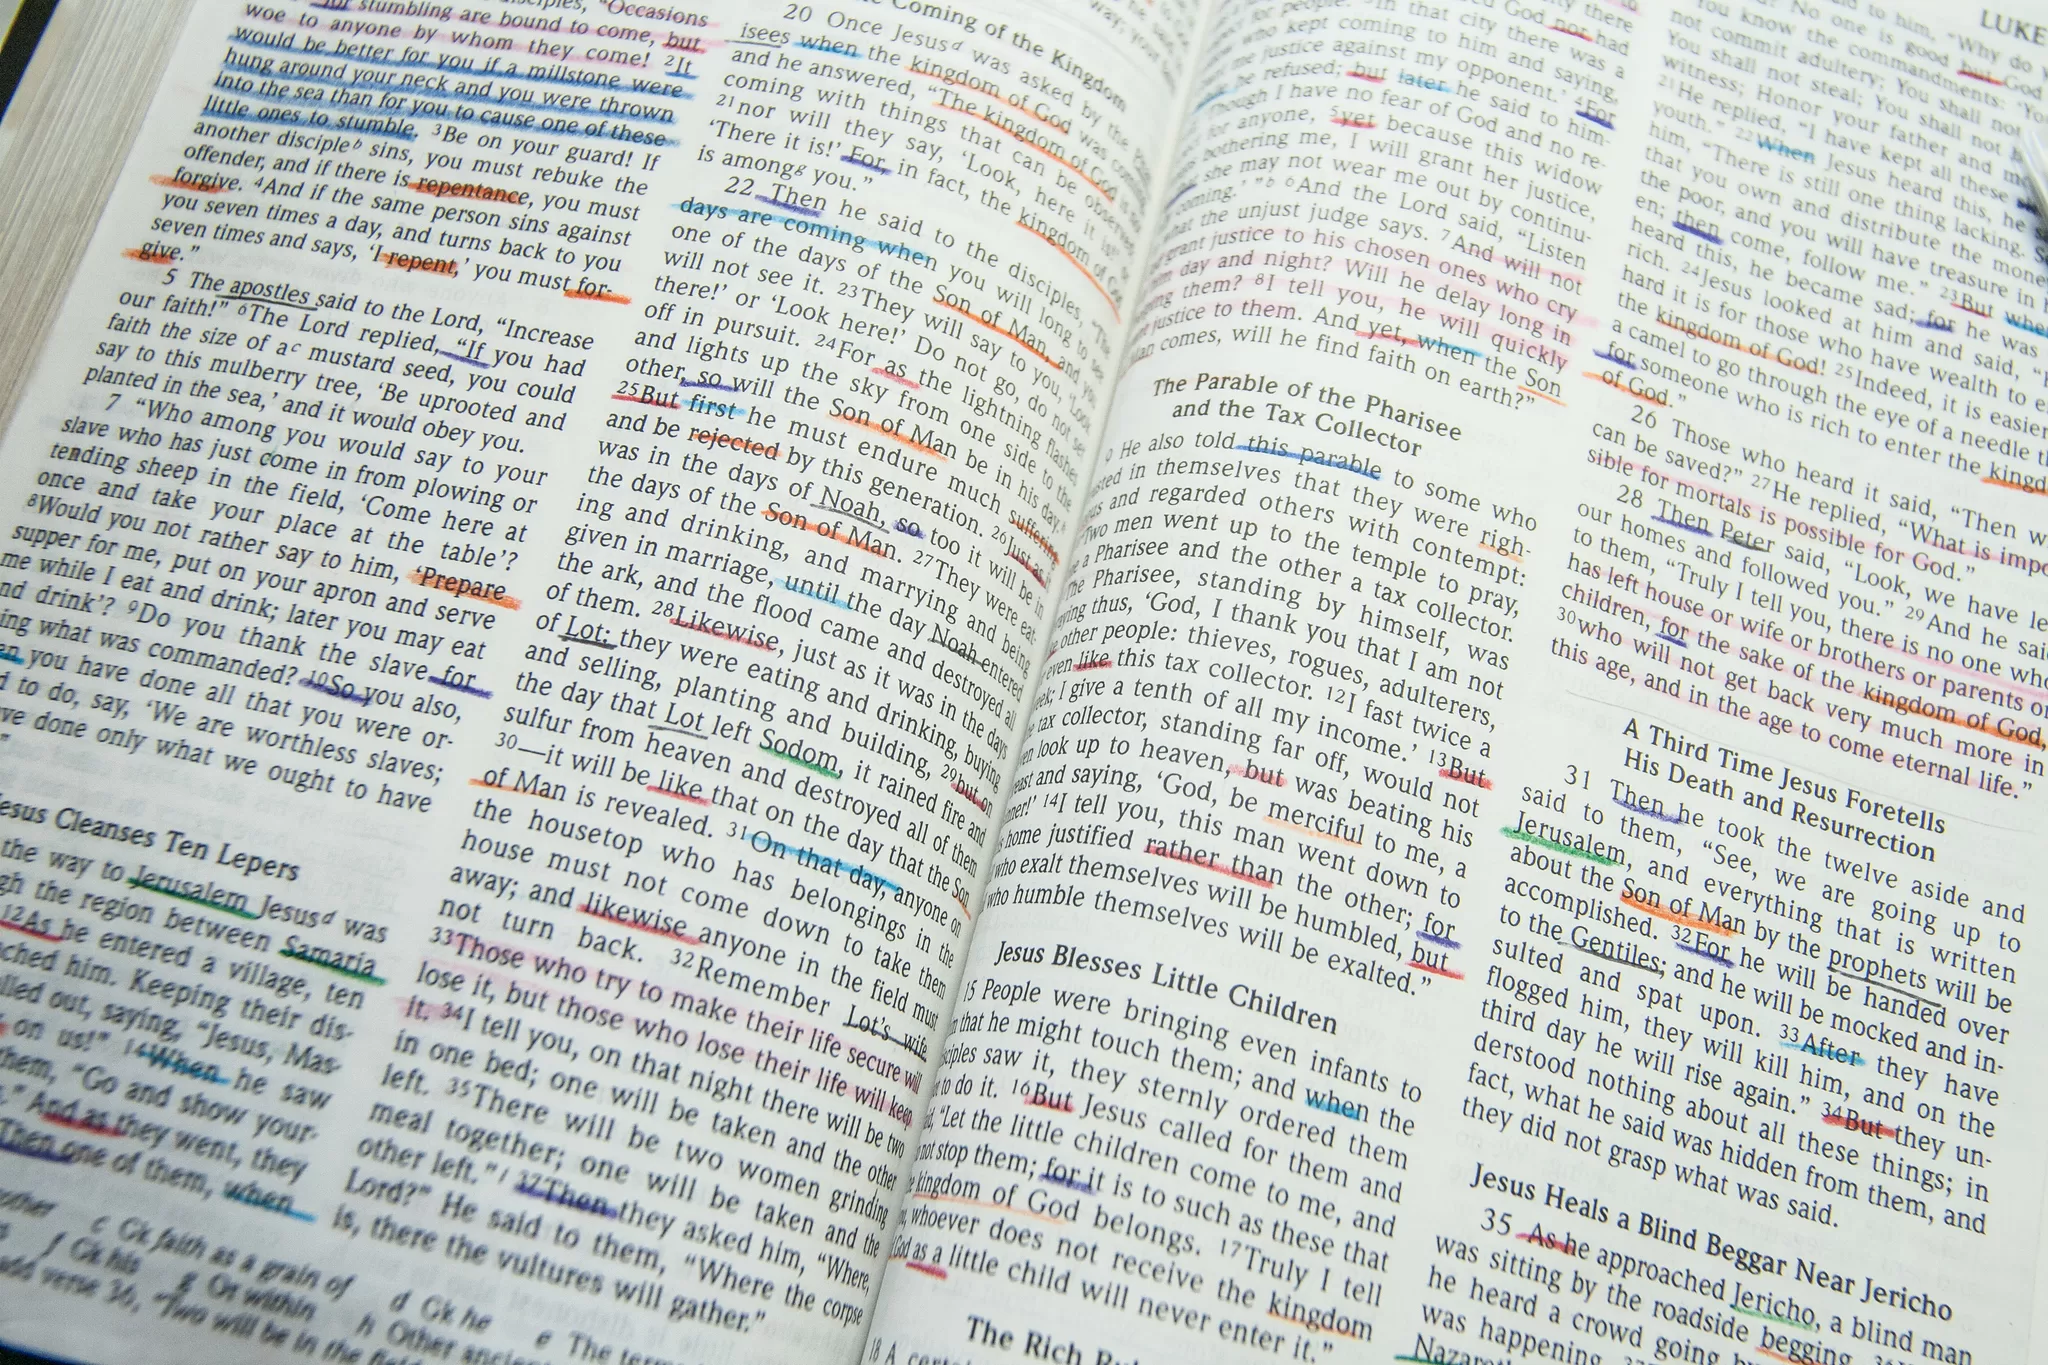 for stumbling are bound to come, but
woe to anyone by whom they come! 2It
would be better for you if a millstone were
hung around your neck and you were thrown
into the sea than for you to cause one of these
little ones to stumble. 3Be on your guard! If
another discipleb sins, you must rebuke the
offender, and if there is repentance, you must
forgive. 4And if the same person sins against
you seven times a day, and turns back to you
seven times and says, ‘I repent,’ you must for-
give.”
5 The apostles said to the Lord, “Increase
our faith!” 6The Lord replied, “If you had
faith the size of ac mustard seed, you could
say to this mulberry tree, ‘Be uprooted and
planted in the sea,’ and it would obey you.
7 “Who among you would say to your
slave who has just come in from plowing or
tending sheep in the field, ‘Come here at
once and take your place at the table’?
8Would you not rather say to him, ‘Prepare
supper for me, put on your apron and serve
me while I eat and drink; later you may eat
and drink’? 9Do you thank the slave for
what was commanded? 10So you also,
you have done all that you were or-
to do, say, ‘We are worthless slaves;
done only what we ought to have
Jesus Cleanses Ten Lepers
the way to Jerusalem Jesusd was
the region between Samaria
12As he entered a village, ten
him. Keeping their dis-
out, saying, “Jesus, Mas-
on us!” 14When he saw
them, “Go and show your-
And as they went, they
Then one of them, when
c Gk faith as a grain of
d Gk he
e The
f Gk his
g Or within
h Other
verse 36, “Two will be in the
Coming of the Kingdom
20 Once Jesusd was asked by the
isees when the kingdom of God was
and he answered, “The kingdom of God is
coming with things that can be observed;
21nor will they say, ‘Look, here it is!’
‘There it is!’ For, in fact, the kingdom of
is amongg you.”
22 Then he said to the disciples, “The
days are coming when you will long to see
one of the days of the Son of Man, and you
will not see it. 23They will say to you, ‘Look
there!’ or ‘Look here!’ Do not go, do not set
off in pursuit. 24For as the lightning flashes
and lights up the sky from one side to the
other, so will the Son of Man be in his day.
25But first he must endure much suffering
and be rejected by this generation. 26Just as
was in the days of Noah, so too it will be in
the days of the Son of Man. 27They were eat-
ing and drinking, and marrying and being
given in marriage, until the day Noah entered
the ark, and the flood came and destroyed all
of them. 28Likewise, just as it was in the days
of Lot: they were eating and drinking, buying
and selling, planting and building, 29but on
the day that Lot left Sodom, it rained fire and
sulfur from heaven and destroyed all of them
30—it will be like that on the day that the Son
of Man is revealed. 31On that day, anyone on
the housetop who has belongings in the
house must not come down to take them
away; and likewise anyone in the field must
not turn back. 32Remember Lot’s wife.
33Those who try to make their life secure will
lose it, but those who lose their life will keep
it. 34I tell you, on that night there will be two
in one bed; one will be taken and the other
left. 35There will be two women grinding
meal together; one will be taken and the
other left.”i 37Then they asked him, “Where,
Lord?” He said to them, “Where the corpse
is, there the vultures will gather.”
In that city there was a
who kept coming to him and saying,
justice against my opponent.’ 4For
he refused; but later he said to him-
though I have no fear of God and no re-
for anyone, 5yet because this widow
bothering me, I will grant her justice,
she may not wear me out by continu-
coming.’ ”b 6And the Lord said, “Listen
what the unjust judge says. 7And will not
grant justice to his chosen ones who cry
day and night? Will he delay long in
them? 8I tell you, he will quickly
justice to them. And yet, when the Son
comes, will he find faith on earth?”
The Parable of the Pharisee
and the Tax Collector
9 He also told this parable to some who
in themselves that they were righ-
and regarded others with contempt:
“Two men went up to the temple to pray,
a Pharisee and the other a tax collector.
The Pharisee, standing by himself, was
thus, ‘God, I thank you that I am not
other people: thieves, rogues, adulterers,
even like this tax collector. 12I fast twice a
I give a tenth of all my income.’ 13But
tax collector, standing far off, would not
look up to heaven, but was beating his
and saying, ‘God, be merciful to me, a
14I tell you, this man went down to
home justified rather than the other; for
who exalt themselves will be humbled, but
who humble themselves will be exalted.”
Jesus Blesses Little Children
15 People were bringing even infants to
that he might touch them; and when the
saw it, they sternly ordered them
to do it. 16But Jesus called for them and
“Let the little children come to me, and
not stop them; for it is to such as these that
kingdom of God belongs. 17Truly I tell
whoever does not receive the kingdom
God as a little child will never enter it.”
The Rich
18 A
LUKE
No one is good but God
You know the commandments: ‘You
not commit adultery; You shall not
You shall not steal; You shall not
witness; Honor your father and
21He replied, “I have kept all these
youth.” 22When Jesus heard this, he
him, “There is still one thing lacking.
that you own and distribute the money
the poor, and you will have treasure in
en; then come, follow me.” 23But when
heard this, he became sad; for he was
rich. 24Jesus looked at him and said,
hard it is for those who have wealth to
the kingdom of God! 25Indeed, it is easier
a camel to go through the eye of a needle
for someone who is rich to enter the
of God.”
26 Those who heard it said, “Then
can be saved?” 27He replied, “What is
sible for mortals is possible for God.”
28 Then Peter said, “Look, we have
our homes and followed you.” 29And he
to them, “Truly I tell you, there is no one who
has left house or wife or brothers or parents or
children, for the sake of the kingdom of God,
30who will not get back very much more in
this age, and in the age to come eternal life.”
A Third Time Jesus Foretells
His Death and Resurrection
31 Then he took the twelve aside and
said to them, “See, we are going up to
Jerusalem, and everything that is written
about the Son of Man by the prophets will be
accomplished. 32For he will be handed over
to the Gentiles; and he will be mocked and in-
sulted and spat upon. 33After they have
flogged him, they will kill him, and on the
third day he will rise again.” 34But they un-
derstood nothing about all these things; in
fact, what he said was hidden from them, and
they did not grasp what was said.
Jesus Heals a Blind Beggar Near Jericho
35 As he approached Jericho, a blind man
was sitting by the roadside begging.
he heard a crowd going
was happening.